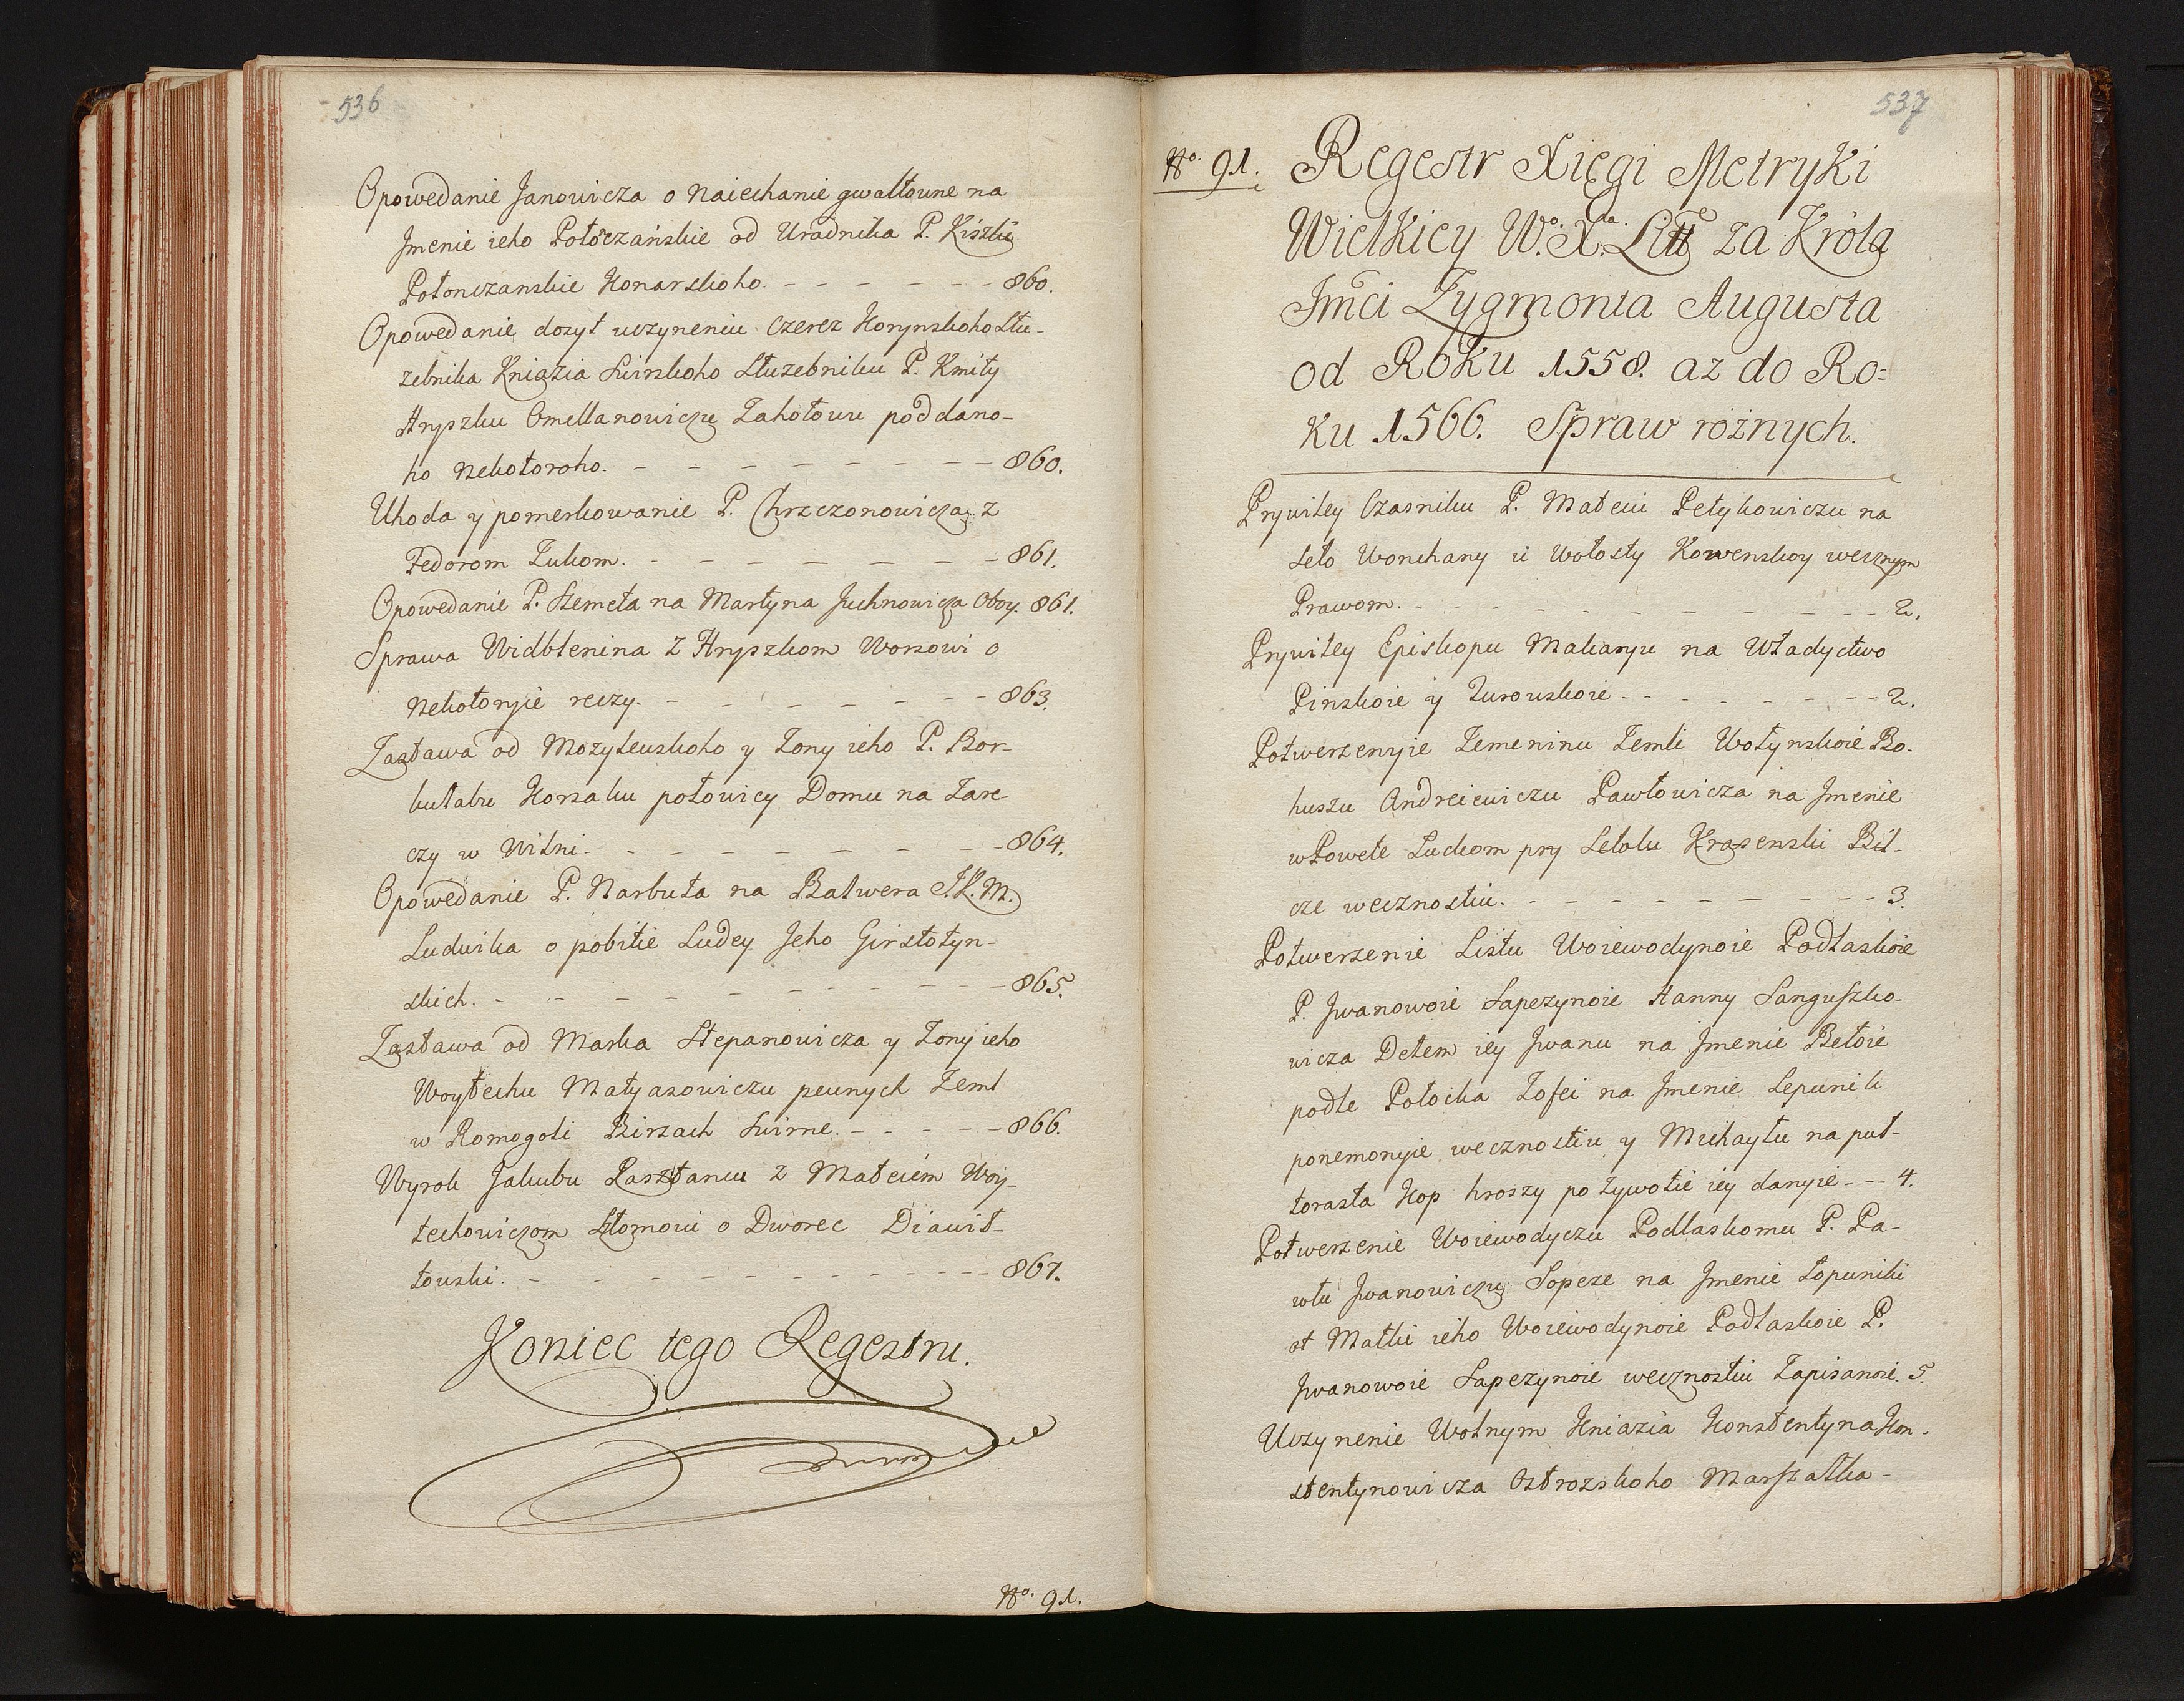 536
Opowedanie Janowicza o naiechanie gwałtowne na
Jmenie ieho Połoczańskie od Uradnika P. Kiszki
Połonczanskie Konarskoho. - - - - - - 860.
Opowedanie dosyt uczyneniu czerez Horynskoho Słu-
zebnika Kniazia Swirskoho Słuzebniku P. Kmity
Hryszku Omellanowiczu Zahołowu poddano-
ho nekotoroho. - - - - - - - - 860.
Uhoda y pomerkowanie P. Chrzczonowicza z
Fedorom Zukom. - - - - - - - 861.
Opowedanie P. Szemeta na Martyna Juchnowicza Oboy. 861.
Sprawa Widblenina z Hryszkom Worsowi o
nekotoryie reczy. - - - - - - - 863.
Zastawa od Mozyleuskoho y Zony ieho P. Bor-
kułabu Korsaku połowicy Domu na Zare-
czy w Wilni - - - - - - - - 864.
Opowedanie P. Narbuta na Balwera J.K.M.
Ludwika o pobitie Ludey Jeho Girstotyn-
skich. - - - - - - - - - 865.
Zastawa od Marka Stepanowicza y Zony ieho
Woytechu Matyasowiczu peunych Zeml
w Romogoli Birzach Swirne. - - - - - 866.
Wyrok Jakubu Rasztanu z Mateiem Woy-
techowiczom Słomowi o Dworec Diawił-
towski. - - - - - - - - - 867.
Koniec tego Regestru.
No. 91.
537
No. 91. Regestr Xięgi Metryki
Wielkiey W.o X.a Litt za Króla
Jmci Zygmonta Augusta
od Roku 1558. az do Ro=
ku 1566. Spraw róznych.
Prywiley Czasniku P. Mateiu Petykowiczu na
seło Wonchany u wołosty Kowenskoy wecznym
Prawom. - - - - - - - - - 2.
Prywiley Episkopu Makaryu na Władyctwo
Pinskoie y Turouskoie - - - - - - - 2.
Potwerzenyie Zemeninu Zemli Wołynskoie Bo-
huszu Andreiewiczu Pawłowicza na Jmenie
w Powete Luckom pry Selolu Krasenski Bił-
cze wecznostiu. - - - - - - - - 3.
Potwerzenie Listu Woiewodynoie Podlaskoie
P. Jwanowoie Sapezynoie Hanny Sanguszko-
wicza Detem iey Jwanu na Jmenie Bełoie
podle Połocka Zofei na Jmenie Lepunik
ponemonyie wecznostiu y Michayłu na puł-
torasta Kop hroszy po zywotie iey danyie - - - 4.
Potwerzenie Woiewodyczu Podlaskomu P. Pa-
włu Jwanowiczu Sopeze na Jmenie Łopuniki
ot Matki ieho Woiewodynoie Podlaskoie P.
Jwanowoie Sapezynoie wecznostiu Zapisanoie. 5.
Uczynenie Wolnym Kniazia Konstentyna Kon-
stentynowicza Ostrozskoho Marszałka-